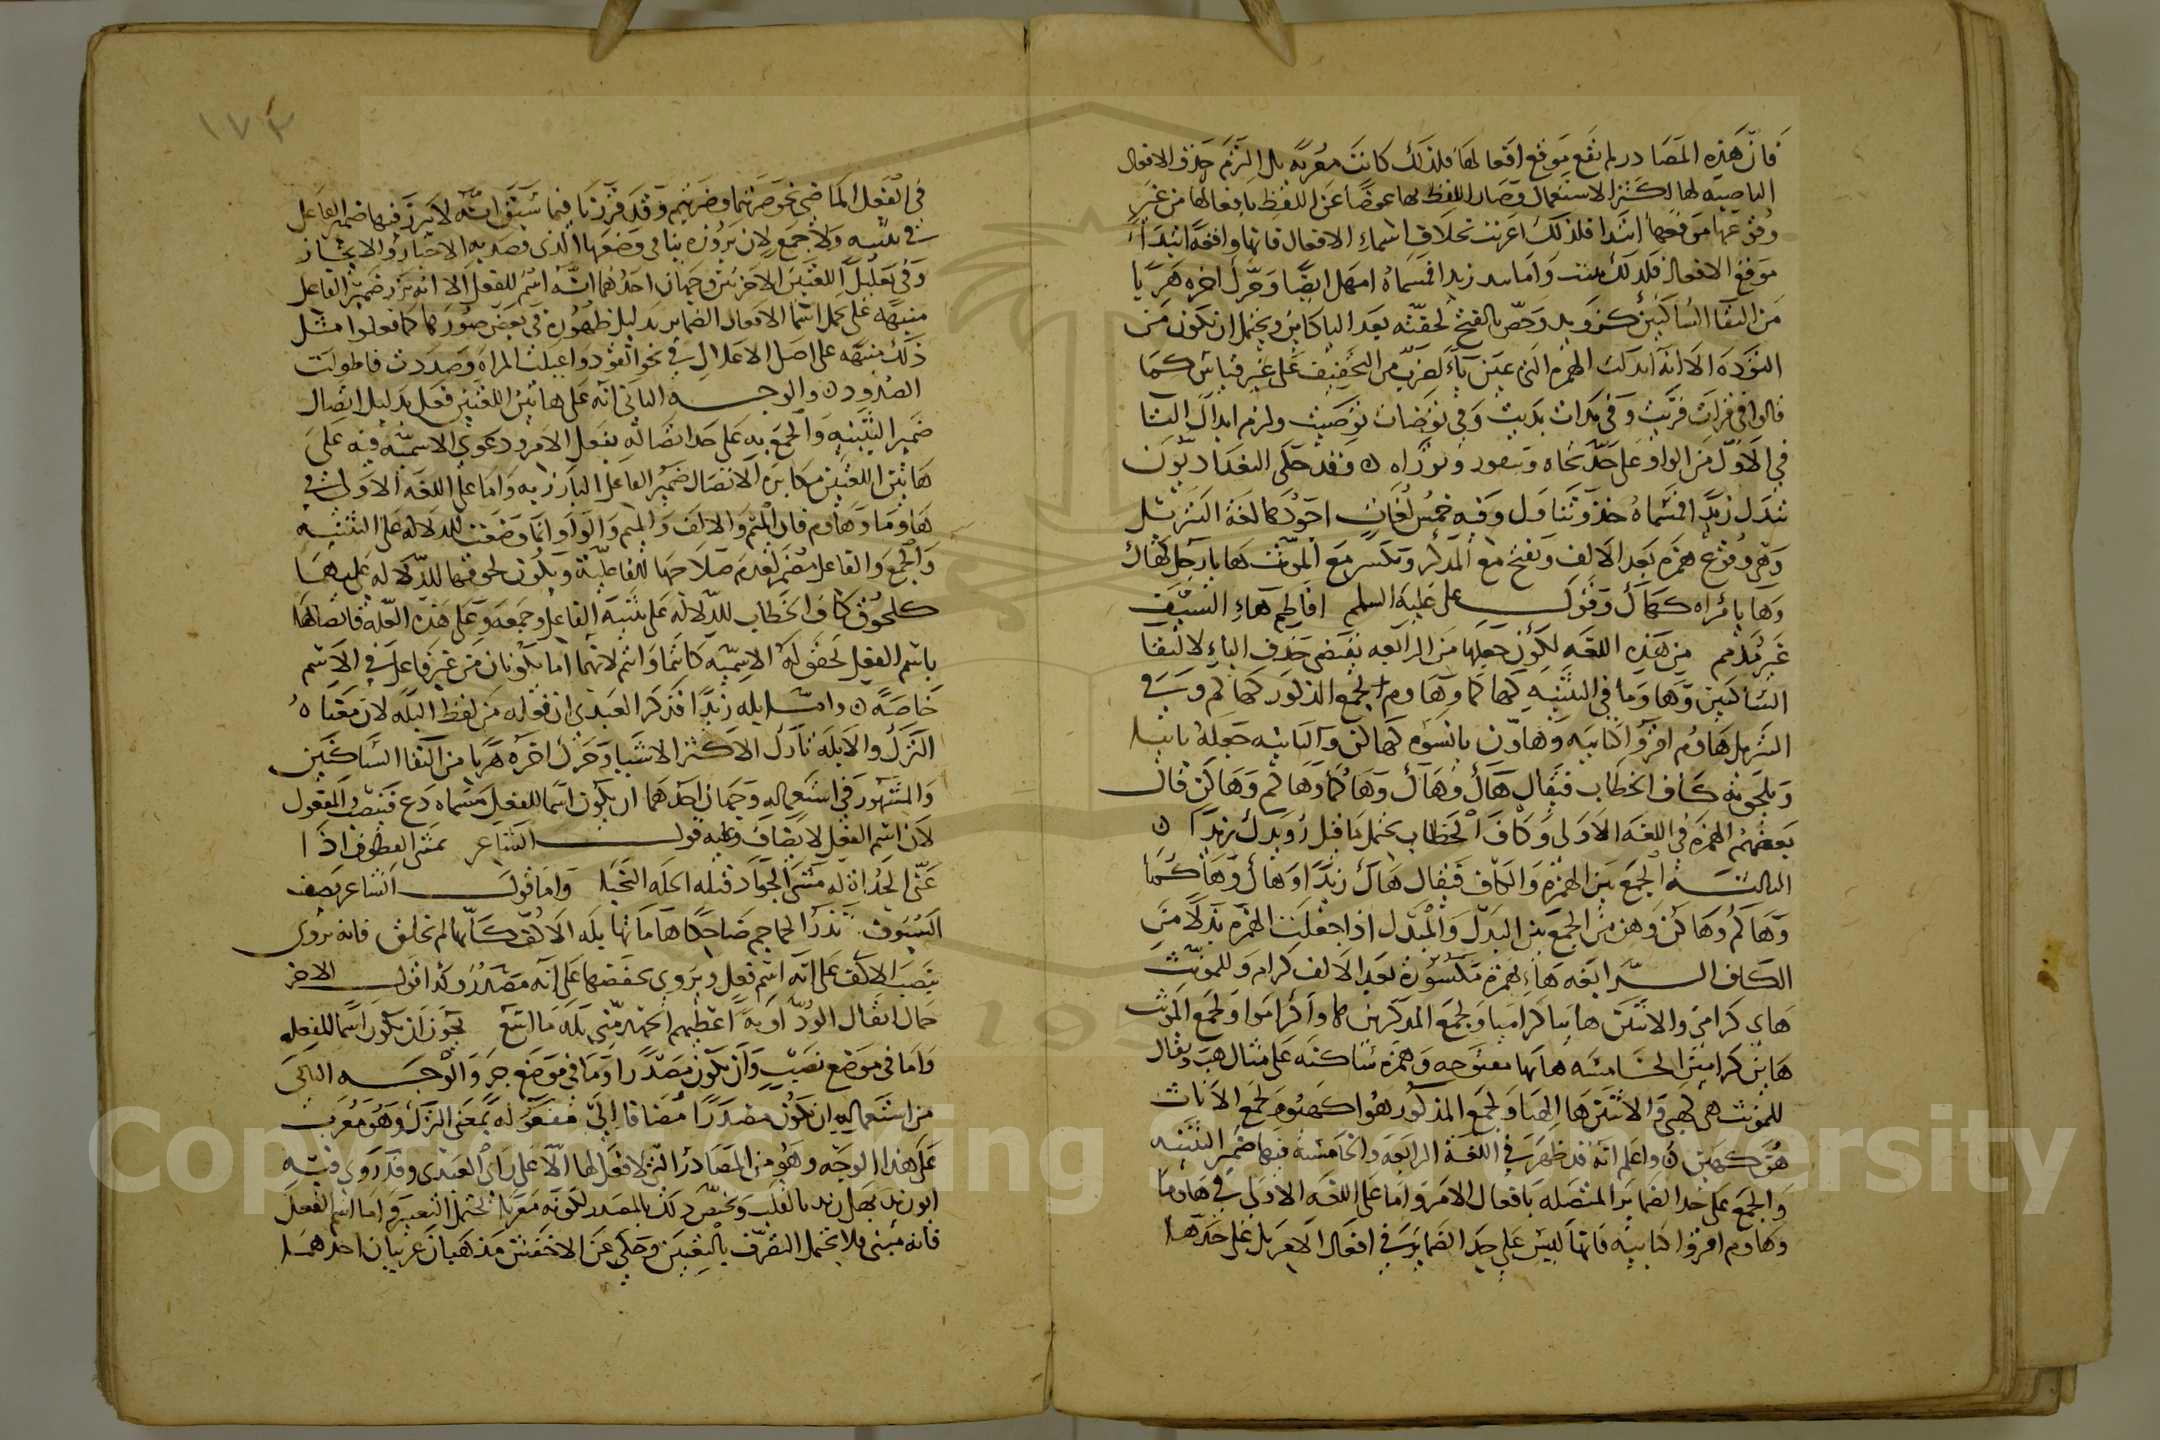 فان هذه المصادر لم تقع موقع افعالها فلذلك كانت معربة بل التزم حذف الافعال
الناصبة لها لكثرة الاستعمال وصار اللفظ بها عوضا عن اللفظ بافعالها من غير
وقوعها موقعها ابتدا فلذلك اعربت بخلاف اسماء الافعال فانها واقعة ابتداء
موقع الافعال فلذلك بنيت واما تيد زيدا فمسماه امهل ايضا وحرك اخره هربا
من التقا الساكنين كرويد وخص بالفتح لخفته بعد الياء كاين ويحتمل ان يكون من
التؤدة الا انه ابدلت الهمزة التي عين ياء لضرب من التخفيف على غير قياس كما
قالوا في قرات قريت وفي بدات بديت وفي توضات توضيت ولزم ابدال التا
في الاول من الواو على حد تجاه وتيقور وتوراه وقد حكى البغداديون
تيدك زيدا فمسماه خذ وتناول وفيه خمس لغات اجودها لغة التنزيل
وهي وقوع همزة بعد الالف وتفتح مع المذكر وتكسر مع المونث كها يا رجل كهاك
وها يا مراه كهاك وقول على عليه السلم افاطم هاء السيف
غير مذمم من هذه اللغة لكون جعلها من الرابعة يقتضي حذف الياء لالتقا
الساكنين وهاوما في التثنية كهاكما وهاوم لجمع الذكور كهاكم وفي
التنزيل هاوم اقرؤا كتابيه وهاون يا نسوة كهاكن والثانية
ويلحقونه كاف الخطاب فيقال هاك وهاك وهاكما وهاكم وهاكن قال
بعضهم الهمزة في اللغة الاولى وكاف الخطاب يحتمل ما قيل رويدك زيدا
الثالثة الجمع بين الهمزة والكاف فيقال هاءك زيدا وهاءك وهاءكما
وهاءكم وهاءكن وهن من الجمع بين البدل والمبدل اذا جعلت الهمزة بدلا من
الكاف الرابعة هاء بهمزة مكسورة بعد الالف كرام وللمونث
هاى كرامي والاثنين هائيا كراميا ولجمع المذكرين هاوا كراموا ولجمع المونث
هائين كرامين الخامسة هاءها مفتوحة وهمزة ساكنة على مثال هب ويقال
للمونث هي كهبي وللاثنتين ها كهبا ولجمع المذكور هئوا كهبوا ولجمع الاناث
هئن كهبن واعلم انه قد ظهر في اللغة الرابعة والخامسة فيها ضمير التثنية
والجمع على حد الضماير المتصلة بافعال الامر واما على اللغة الاولى في هاوما
وهاوم اقرؤا كتابيه فانها ليس على حد الضماير في افعال الامر بل على حدها
١٧٣
في الفعل الماضي نحو ضربتما وضربتم وقد قررنا فيما سبق انه لا يبرز فيها ضمير الفاعل
في تثنيه ولا جمع لان بروزه ينافي وضعها الذي قصد به الاختصار والايجاز
وفي تعليل اللغتين الاخرتين وجهان احدهما انه اسم للفعل الا انه برز ضمير الفاعل
منبهة على تحمل اسما الافعال الضماير بدليل ظهوره في بعض صورها كما فعلوا مثل
ذلك منبهة على اصل الاعلال في نحو القود واغيلت المراة وصددت فاطولت
الصدود والوجه الثاني انه على هاتين اللغتين فعل بدليل اتصال
ضمير التثنية والجمع به على حد اتصاله بفعل الامر ودعوى الاسمية فيه على
هاتين اللغتين مكابرة لاتصال ضمير الفاعل البارز به واما على اللغة الاولى في
هاوما وهاوم فان الميم والالف والميم والواو انما وضعت للدلالة على التثنية
والجمع والفاعل مضمر لعدم صلاحها للفاعلية ويكون لحوقها للدلالة عليهما
كلحوق كاف الخطاب للدلالة على تثنية الفاعل وجمعه وعلى هذه العلة فاتصالها
باسم الفعل تحقق له الاسمية كانتما وانتم لانهما اما يكونان من غير فاعل في الاسم
خاصة واما بله زيدا فذكر العبدي ان قوله من لفظ البله لان معناه
الترك والابله تارك لاكثر الاشيا وحرك اخره هربا من التقا الساكنين
والمشهور في استعماله وجهان احدهما ان يكون اسما للفعل مسماه دع فينصب المفعول
لان اسم الفعل لا يضاف وعليه قول الشاعر تمشي القطوف اذا
غنى الحداة له مشي الجواد فبله الجلة النجبا واما قول الشاعر يصف
السيوف تذر الجماجم ضاحيا هاماتها بله الاكف كانها لم تخلق فانه يروى
بنصب الاكف على انه اسم فعل ويروى بخفضها على انه مصدر وكذا قول الاخر
حمال اثقال الود اونة اعطيهم الجهد مني بله ما اسع يجوز ان يكون اسما للفعل
واما في موضع نصب وان يكون مصدرا وما في موضع جر والوجه الثاني
من استعماليه ان يكون مصدرا مضافا الى مفعوله بمعنى الترك وهو معرب
على هذا الوجه وهو من المصادر التي لا فعل لها الا على راى العبدي وقد روى فيه
ابو زيد بهل زيد بالقلب ويختص ذلك بالمصدر لكونه معربا يحتمل التغيير واما اسم الفعل
فانه مبنى فلا يحتمل التصرف بالتغيير وحكى عن الاخفش مذهبان غريبان احدهما
Copyright © King Saud University